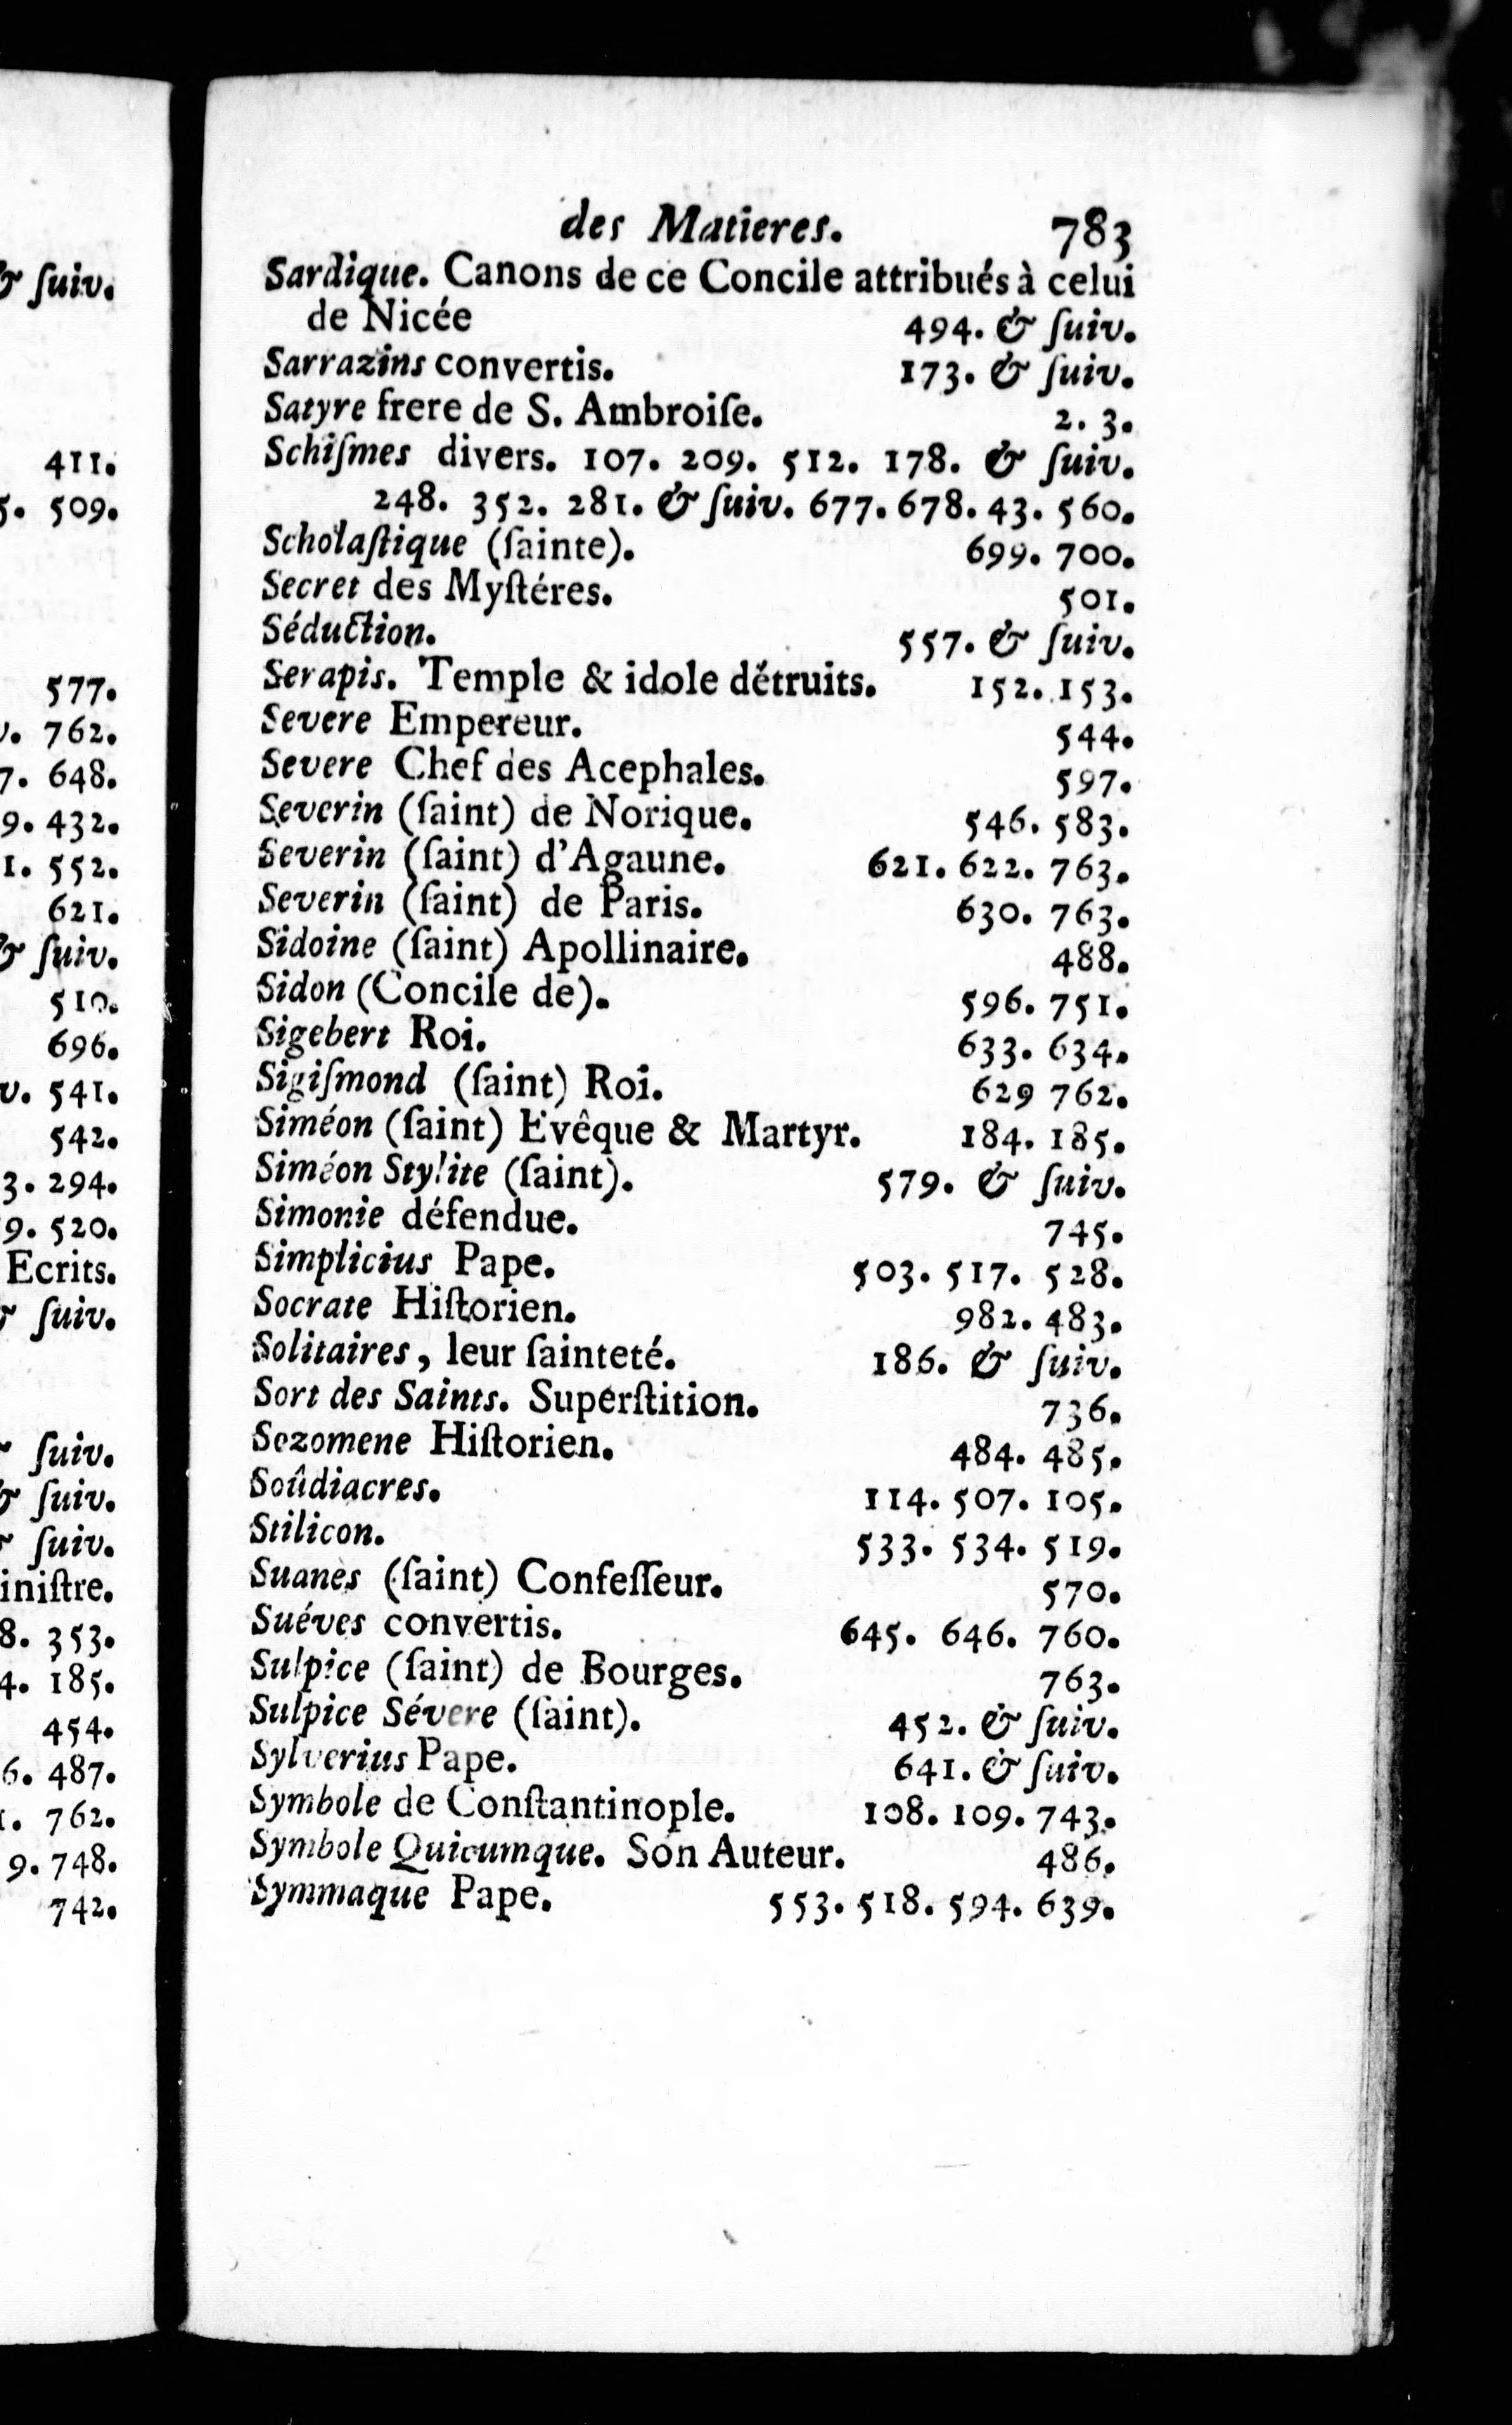 & ſuiv.
411.
509.
577.
762.
648.
432.
552.
621.
& ſuiv.
510.
696.
541.
542.
294.
520.
Ecrits.
ſuiv.
ſuiv.
& ſuiv.
ſuiv.
iniſtre.
353.
185.
454.
487.
762.
9. 748.
742.
des Matieres. 783
Sardique. Canons de ce Concile attribués à celui
de Nicée 494. & ſuiv.
Sarrazins convertis. 173. & ſuiv.
Satyre frere de S. Ambroiſe. 2. 3.
Schiſmes divers. 107. 209. 512. 178. & ſuiv.
248. 352. 281. & ſuiv. 677. 678. 43. 560.
Scholaſtique (ſainte). 699. 700.
Secret des Myſtéres. 501.
Séduction. 557. & ſuiv.
Serapis. Temple & idole détruits. 152. 153.
Severe Empereur. 544.
Severe Chef des Acephales. 597.
Severin (ſaint) de Norique. 546. 583.
Severin (ſaint) d'Agaune. 621. 622. 763.
Severin (ſaint) de Paris. 630. 763.
Sidoine (ſaint) Apollinaire. 488.
Sidon (Concile de). 596. 751.
Sigebert Roi. 633. 634.
Sigiſmond (ſaint) Roi. 629 762.
Siméon (ſaint) Evêque & Martyr. 184. 185.
Siméon Stylite (ſaint). 579. & ſuiv.
Simonie défendue. 745.
Simplicius Pape. 503. 517. 528.
Socrate Hiſtorien. 982. 483.
Solitaires, leur ſainteté. 186. & ſuiv.
Sort des Saints. Superſtition. 736.
Sozomene Hiſtorien. 484. 485.
Soûdiacres. 114. 507. 105.
Stilicon. 533. 534. 519.
Suanes (ſaint) Confeſſeur. 570.
Suéves convertis. 645. 646. 760.
Sulpice (ſaint) de Bourges. 763.
Sulpice Sévere (ſaint). 452. & ſuiv.
Sylverius Pape. 641. & ſuiv.
Symbole de Conſtantinople. 108. 109. 743.
Symbole Quicumque. Son Auteur. 486.
Symmaque Pape. 553. 518. 594. 639.